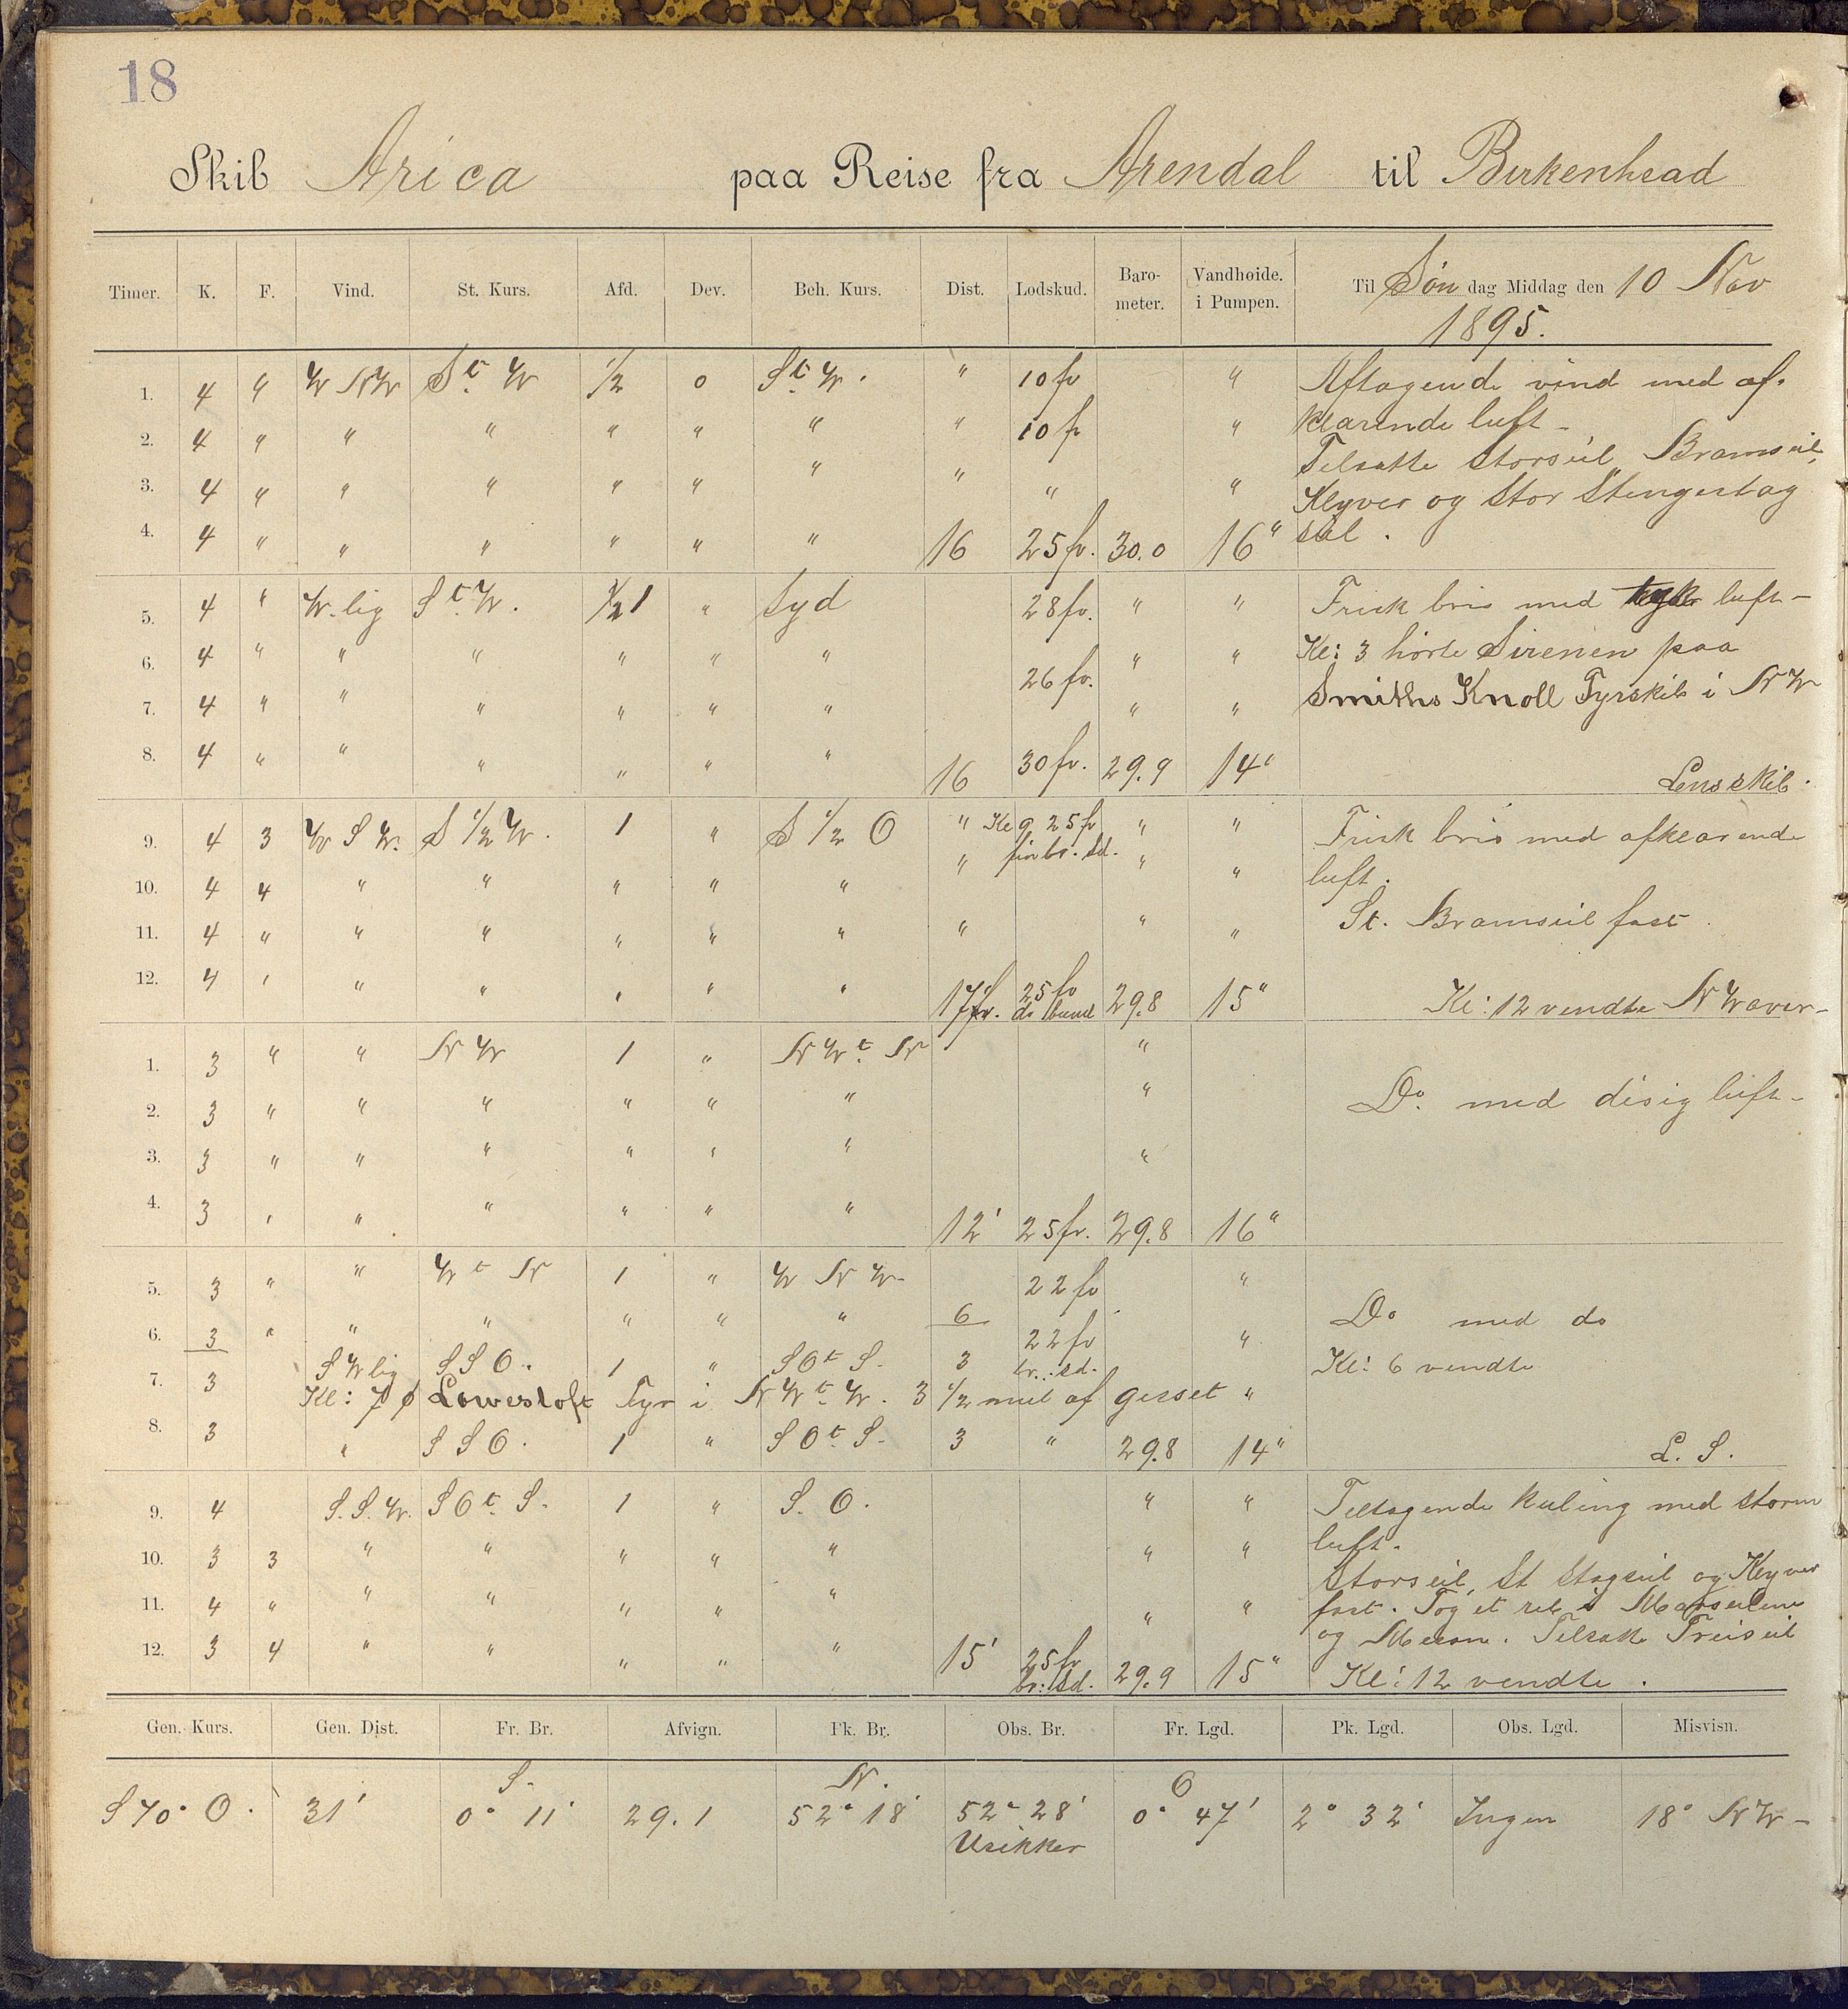 18
Skib Arica paa Reise fra Arendal til Birkenhead
Timer. K. F. Vind. St. Kurs. Afd. Dev. Beh. Kurs. Dist. Lodskud. Barometer. Vandhøide. i Pumpen. Til Søn dag Middag den 10 Nov 1895.
1. 4 " W NW St. W 1/2 0 St. W. " 10 fv " Aftagende vind med af-
2. 4 " " " " " " " 10 fv " klarende luft -
Tilsatte Storseil Bramseil,
3. 4 " " " " " " " " " Klyver og Stor Stengestag
4. 4 " " " " " " 16 25 fv. 30.0 16" seil.
5. 4 " W. lig St. W. 1 " Syd 28 fv. " " Frisk bris med luft -
6. 4 " " " " " " 26 fv. " " Kl: 3 hørte Sirenen paa
7. 4 " " " " " " " " Smiths Knoll Fyrskib i NW
8. 4 " " " " " " 16 30 fv. 29.9 14" Lens skib.
9. 4 3 W S W. S 1/2 W. 1 " S 1/2 O " Kl 9 25 fv " " Frisk bris med afklarende
10. 4 4 " " " " " " fin br. sd. " " luft.
11. 4 " " " " " " " " " St. Bramseil fast
12. 4 " " " " " " 17 fv. 25 fv do bund 29.8 15" Kl: 12 vendte NW over-
1. 3 " " NW 1 " NW t. N "
2. 3 " " " " " " " Do. med disig luft -
3. 3 " " " " " " "
4. 3 " " " " " " 12' 25 fv. 29.8 16"
5. 3 " " W t N 1 " W N W- 22 fv "
6. 3 " " " " " " 6 22 fv br. sd. " Do med do
7. 3 S W lig S S O. 1 " S O t. S. 3 Kl: 6 vendte
Kl: 7 Lowestoft Fyr i NW t. W. 3 1/2 mil af gisset "
8. 3 " S S O. 1 " S O t. S. 3 " 29.8 14" L. S.
9. 4 S. S. W. S O t. S. 1 " S. O. " " Tiltagende kuling med storm
10. 3 3 " " " " " " " luft.
Storseil, St Stagseil og Klyver
11. 4 " " " " " " " " fast. Tog et reb i Mersseilene
og Mesan. Tilsatte Treiseil
12. 3 4 " " " " " 15' 25 fv br: sd. 29.9 15" Kl: 12 vendte.
Gen. Kurs. Gen. Dist. Fr. Br. Afvign. Pk. Br. Obs. Br. Fr. Lgd. Pk. Lgd. Obs. Lgd. Misvisn.
S. N. O
S 70° O. 31' 0° 11' 29.1 52° 18' 52° 28' 0° 47' 2° 32' Ingen 18° NW -
Usikker